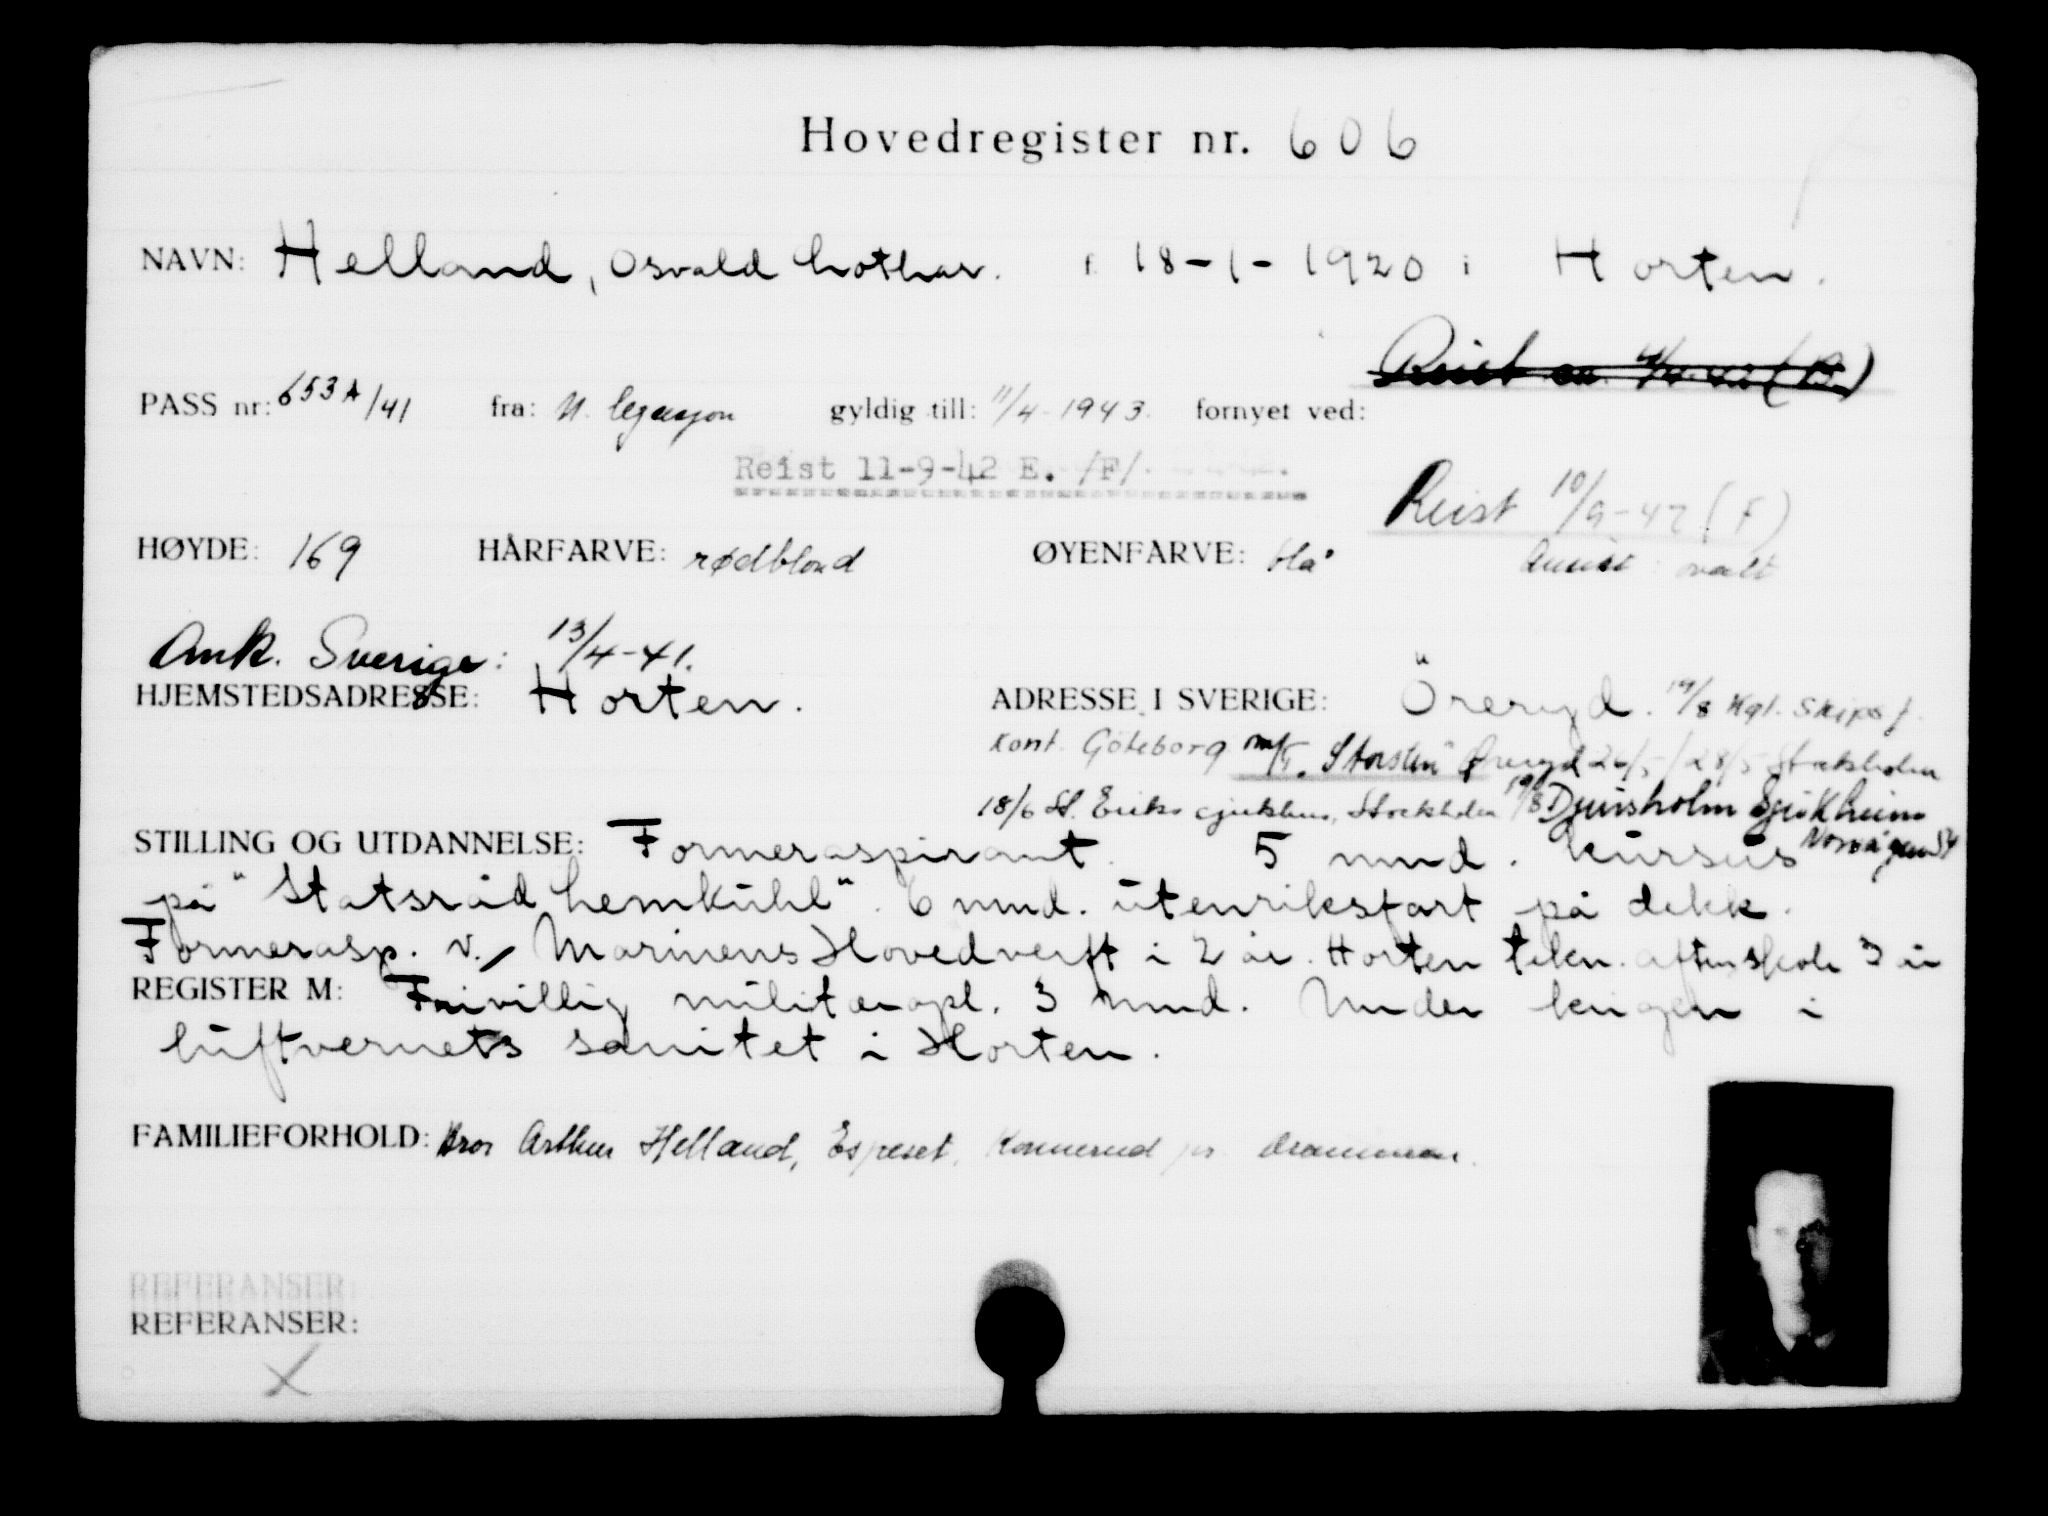 Hovedregister nr. 606
NAVN: Helland, Osvald Lothar. f. 18-1-1920 i Horten.
PASS nr: 653A/41 fra: N. legasjon gyldig till: 11/4-1943. fornyet ved:
Reist 11-9-42 E. /F/.
Reist 10/9-42 (F)
HØYDE: 169 HÅRFARVE: rødblond ØYENFARVE: blå Ansikt: ovalt
Ank. Sverige: 13/4-41.
HJEMSTEDSADRESSE: Horten. ADRESSE I SVERIGE: Öreryd. 19/8 Kgl. Skipsf.
Kont. Göteborg m/T. "Storsten" Øreryd 24/5/28/5 Stockholm
18/6 St. Eriks sjukhus, Stockholm 19/8 Djursholm Sjukheim
STILLING OG UTDANNELSE: Formeraspirant. 5 mnd. kursus
på "Statsråd Lemkühl". 6 mnd. utenriksfart på dekk.
Formerasp. v/ Marinens Hovedverft i 2 år. Horten tekn. aftenskole 3 år
REGISTER M: Frivillig militæropl. 3 mnd. Under krigen i
luftvernets sanitet i Horten.
FAMILIEFORHOLD: Bror Arthur Helland, Espeset, Konnerud pr. Drammen.
REFERANSER:
REFERANSER:
X